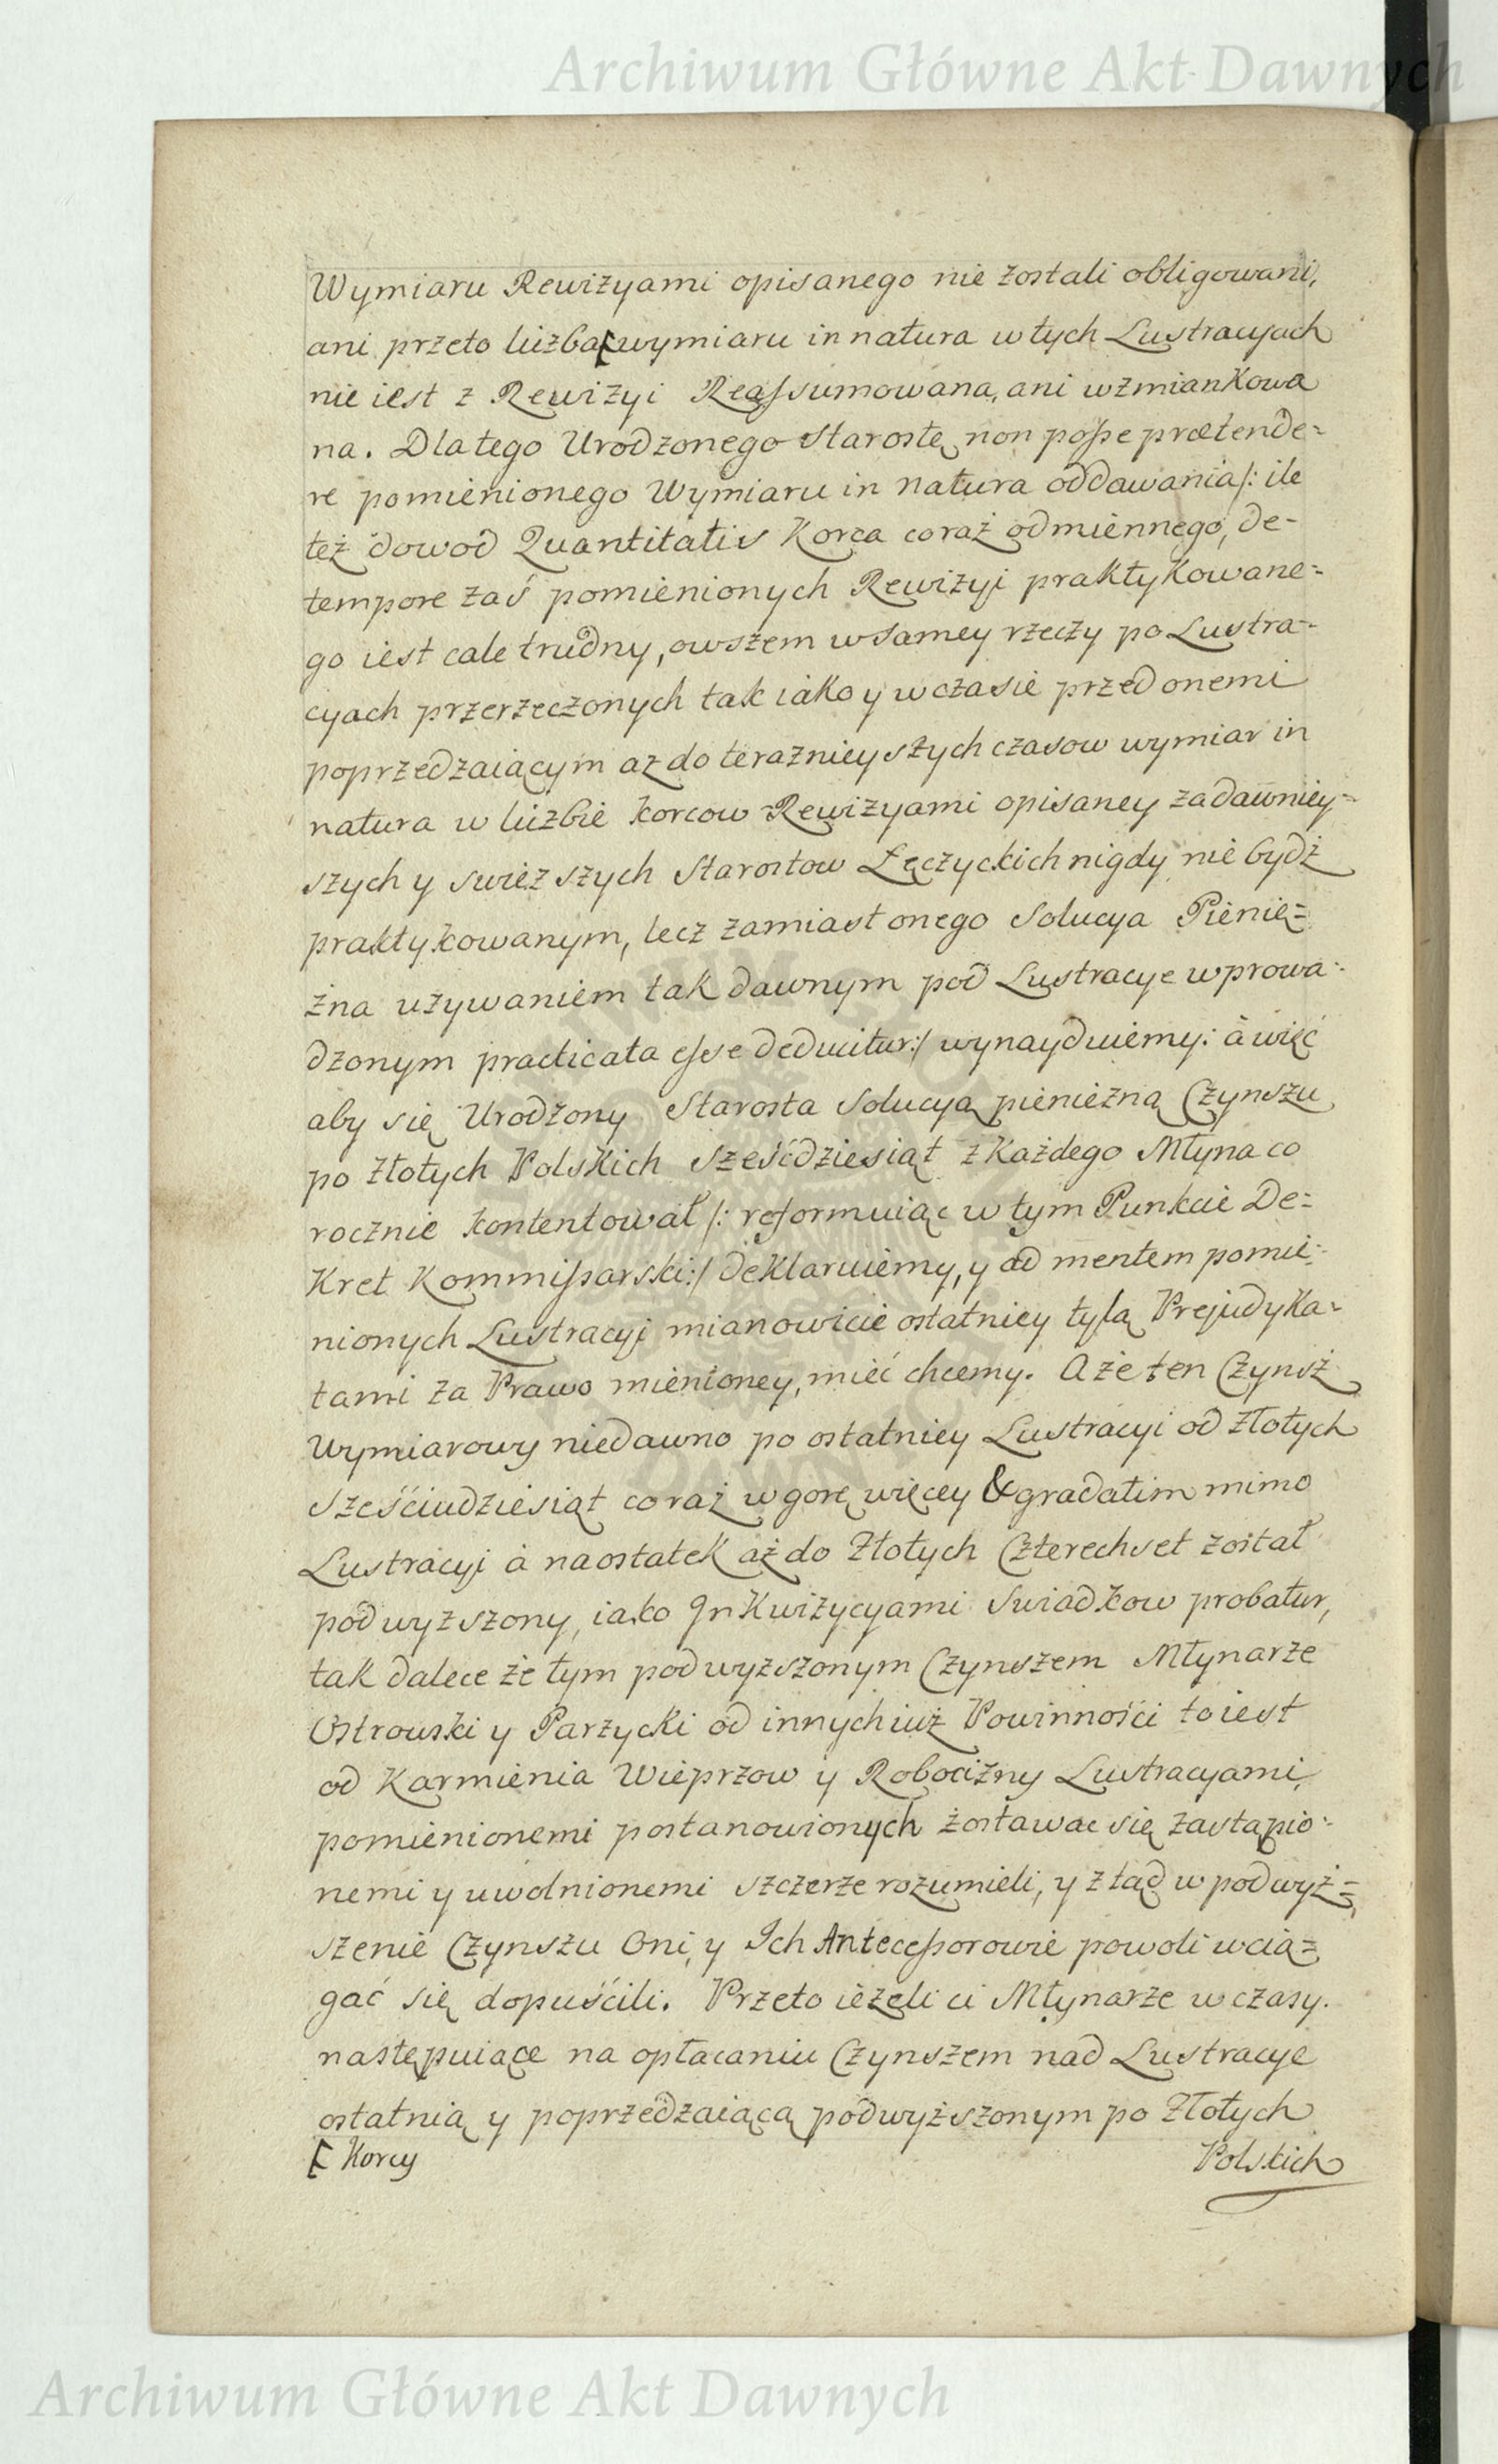 Archiwum Główne Akt Dawnych
Wymiaru Rewizyami opisanego nie zostali obligowani,
ani przeto liczba [ wymiaru in natura w tych Lustracyach
nie iest z Rewizyi Reassumowana, ani wzmiankowa
na. Dlatego Urodzonego Starostę non posse prætende=
re pomienionego Wymiaru in natura oddawania /: ile
też dowod Quantitatis Korca coraż odmiennego, de-
tempore zaś pomienionych Rewizyi praktykowane=
go iest cale trudny, owszem w samey rzeczy po Lustra=
cyach przerzeczonych tak iako y w czasie przed onemi
poprzedzaiącym az do teraznieyszych czasow wymiar in
natura w liczbie korcow Rewizyami opisaney za dawniey=
szych y swiezszych Starostow Łęczyckich nigdy nie bydź
praktykowanym, lecz zamiast onego Solucya Pienię=
żna używaniem tak dawnym pod Lustracye wprowa=
dzonym practicata esse deducitur :/ wynayduiemy: à więc
aby się Urodzony Starosta Solucyą pieniężną Czynszu
po Złotych Polskich Sześćdziesiąt z Każdego Młyna co
rocznie kontentował /: reformuiąc w tym Punkcie De=
Kret Kommissarski :/ deklaruiemy, y ad mentem pomie=
nionych Lustracyi mianowicie ostatniey tylą Prejudyka=
tami za Prawo mienioney, mieć chcemy. A że ten Czynsz
Wymiarowy niedawno po ostatniey Lustracyi od Złotych
Sześciudziesiąt coraz w gorę więcey & gradatim mimo
Lustracyi à naostatek aż do Złotych Czterechset został
podwyzszony, iako Inkwizycyami Swiadkow probatur,
tak dalece że tym podwyzszonym Czynszem Młynarze
Ostrowski y Parzycki od innych iuż Powinności to iest
od Karmienia Wieprzow y Robocizny Lustracyami
pomienionemi postanowionych zostawac się zastąpio=
nemi y uwolnionemi szczerze rozumieli, y z tąd w podwyż=
szenie Czynszu Oni, y Ich Antecessorowie powoli wcią=
gać się dopuścili. Przeto ieżeli ci Młynarze w czasy
następuiące na opłacaniu Czynszem nad Lustracye
ostatnią y poprzedzaiącą podwyższonym po Złotych
[ Korcy
Polskich
Archiwum Główne Akt Dawnych